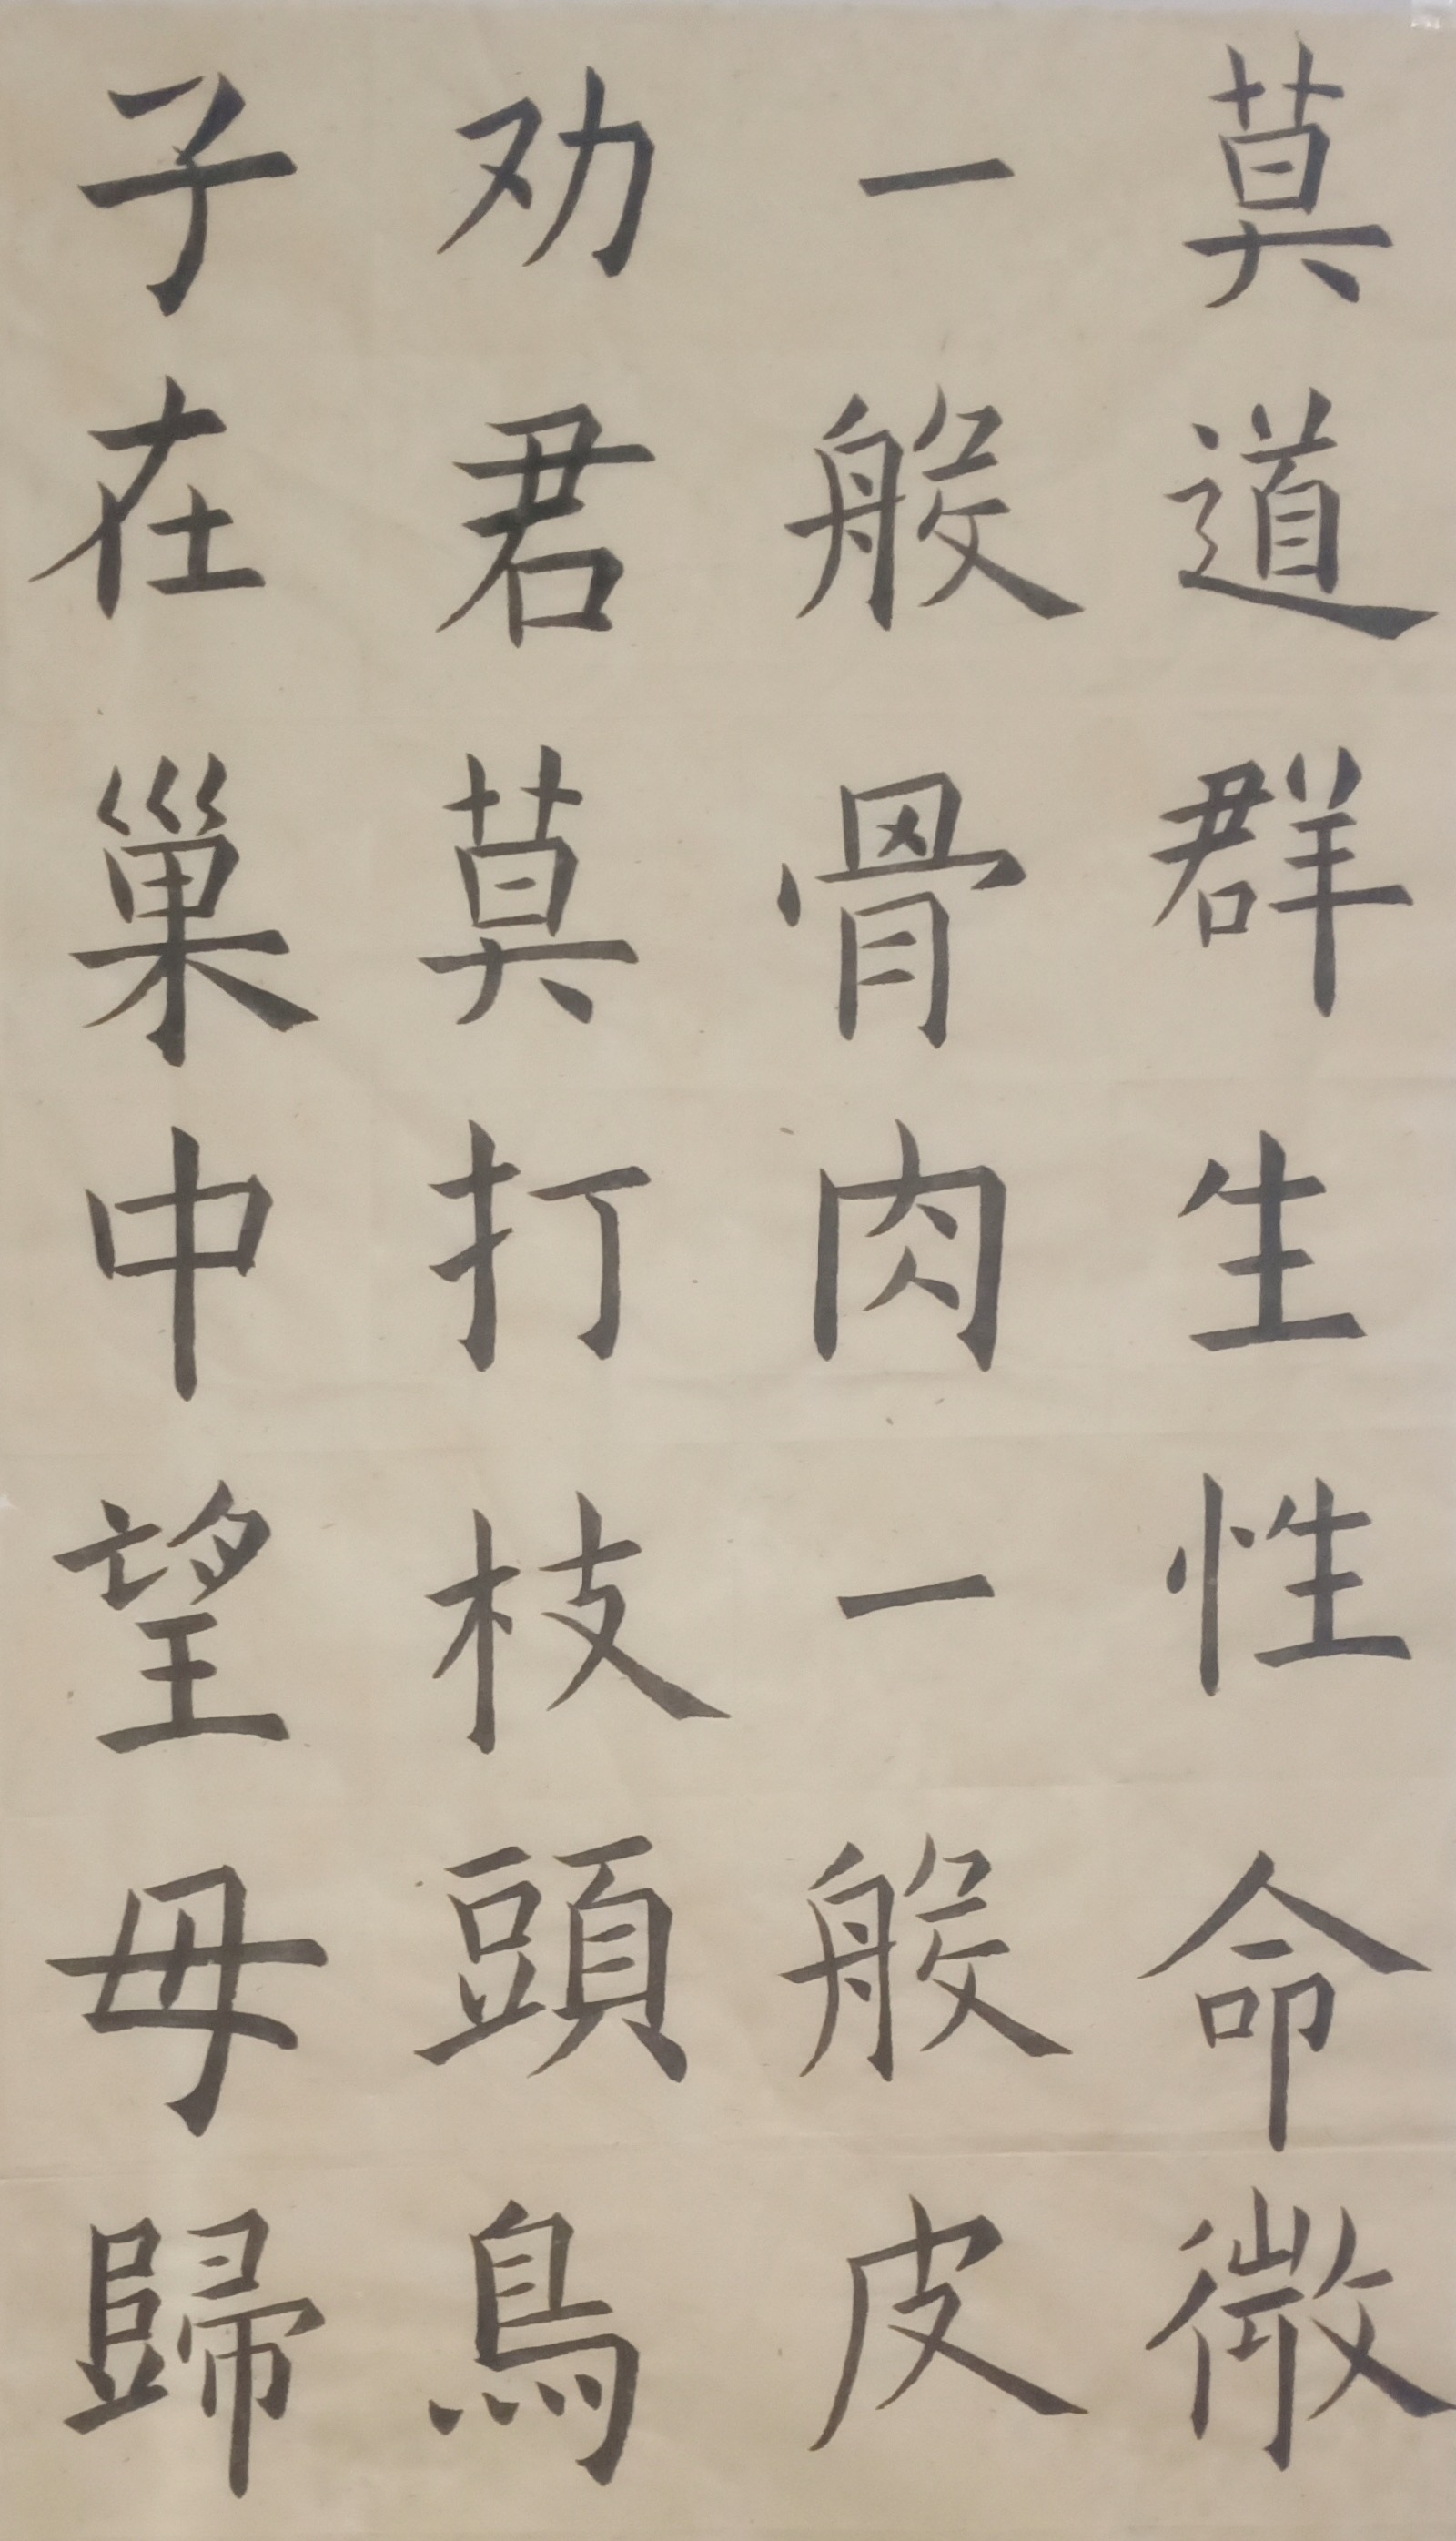 莫道群生性命微
一般骨肉一般皮
劝君莫打枝頭鳥
子在巢中望母歸